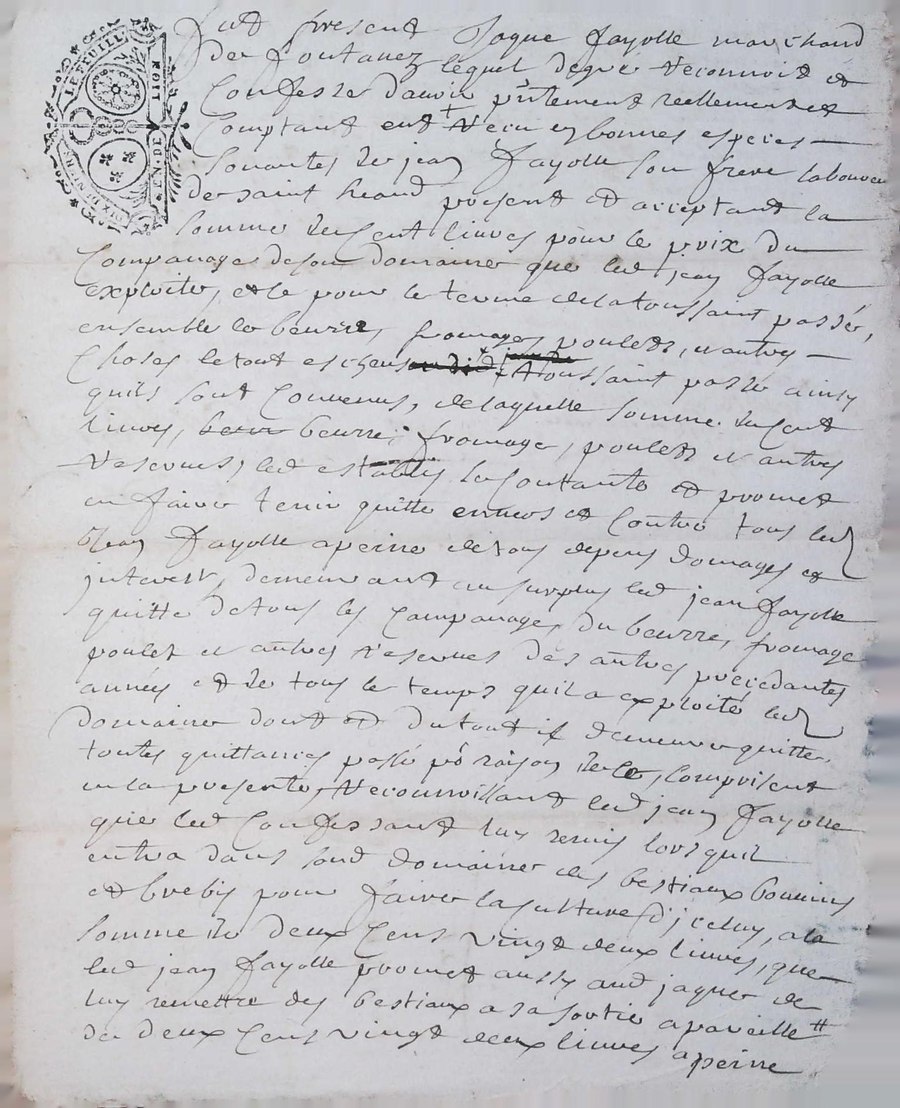 LE FEUILL
EN. DE LION
DIX DENIERS
fut present Jaque fayolle marchand
de fontanez lequel degré reconnoit et
Confesse d'avoir pntement reellement et
Comptant eut + receu en bonnes especes —
sonantes de jean fayolle son frere laboureur
de saint heand present et acceptant la
somme de Cent livres pour le prix du
Companage de son domaine que led jean fayolle
exploite, et le pour le terme de la toussaint passée,
ensemble le beurre, fromages, poulets, et autres —
Choses le tout escheus toussaint passé ainsy
quils sont Convenus, de laquelle somme de Cent
livres, beurre, fromage, poulets et autres
reserves, led estably se Contante et promet
en faire tenir quitte envers et Contre tous led
Jean fayolle a peine de tous depens domages et
interest, demeurant au surplus led jean fayolle
quitte de tous les Companages du beurre, fromage
poulet et autres reserves des autres precedantes
années et de tous le temps quil a exploité led
domaine dont et du tout il demeure quitte
toutes quittances passé pr raison de ce Comprisent
en la presente, reconnoissant led jean fayolle
que led Confessant luy remis lorsquil
entra dans sond domaine des bestiaux bouvins
et brebis pour faire la culture d'jceluy, a la
somme de deux Cens vingt deux livres, que
led jean fayolle promet aussy aud jaques de
luy remettre des bestiaux a sa sortie a pareille #
de deux Cens vingt deux livres a peine